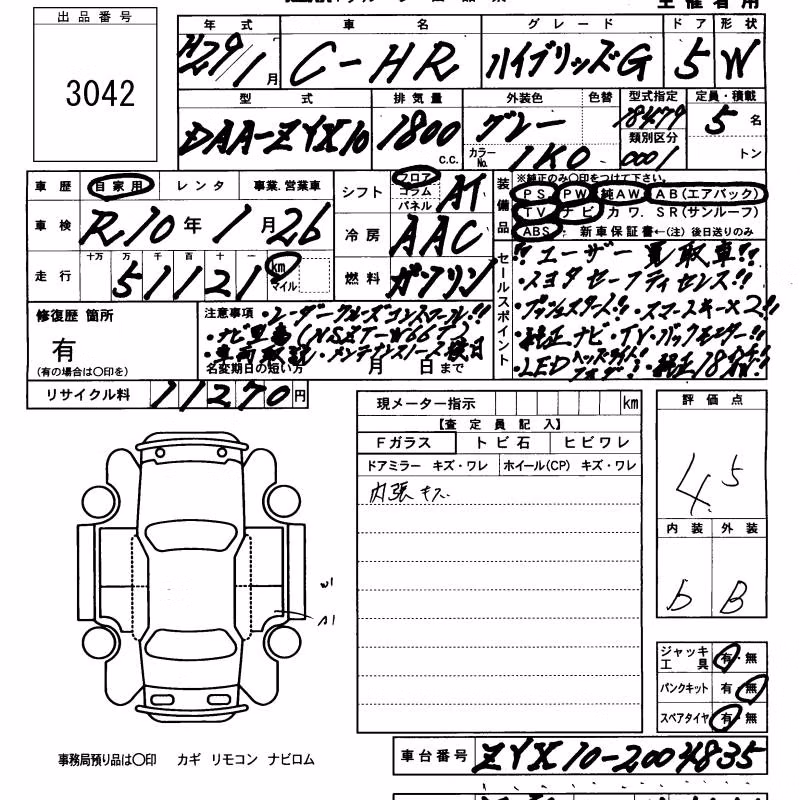 主催者用
出品番号
3042
年式 車名 グレード ドア 形状
H29/1月 C-HR ハイブリッズG 5 W
型式 排気量 外装色 色替 型式指定 定員・積載
DAA-ZYX10 1800 c.c. グレー 18479 5名
カラーNo. 1K0 類別区分 0001 トン
車歴 自家用 レンタ 事業.営業車
シフト フロア コラム パネル AT
車検 R10年1月26
冷房 AAC
走行 十万 万 千 百 十 一
51121 km マイル
燃料 ガソリン
装備品 ※純正のみ○印をつけて下さい。
PS PW 純AW AB(エアバック)
TV ナビ カワ. SR(サンルーフ)
ABS 新車保証書←(注)後日送りのみ
セールスポイント
!!ユーザー買取車!!
・トヨタセーフティセンス!!
・プッシュスタート!!・スマートキー×2!!
・純正ナビ・TV・バックモニター!!
・LEDヘッドライト!!フォグ!!・純正18インチAW!!
修復歴 箇所
有
(有の場合は○印を)
注意事項・レーダークルーズコントロール!!
・ナビ型番(NSZT-W66T)
・車両取説・メンテナンスノート後日
名変期日の短い方 月 日まで
リサイクル料 11270円
現メーター指示 km
【査定員記入】
Fガラス トビ石 ヒビワレ
ドアミラー キズ・ワレ ホイール(CP) キズ・ワレ
内張キズ
評価点
4.5
内装 外装
b B
W1
A1
ジャッキ工具 有・無
パンクキット 有 無
スペアタイヤ 有・無
事務局預り品は○印 カギ リモコン ナビロム
車台番号 ZYX10-2004835